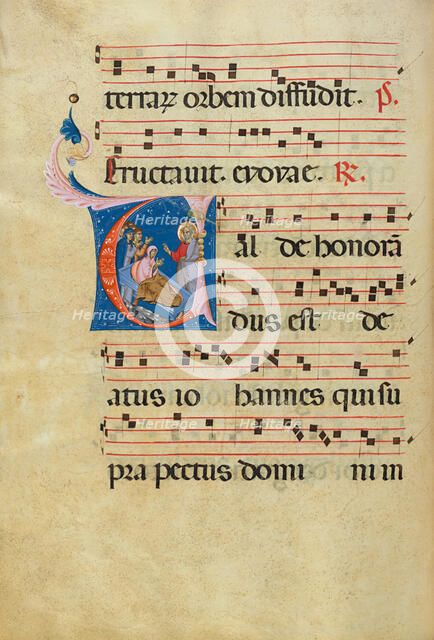 terrarꝝ orbem diffudit. ps.
Eructauit. evovae. ℟.
Ual de honorā
dus est be
atus io hannes qui su
pra pectus domi ni in
Heritage
Heritage
Heritage
Heritage
Heritage
Heritage
Heritage
Heritage